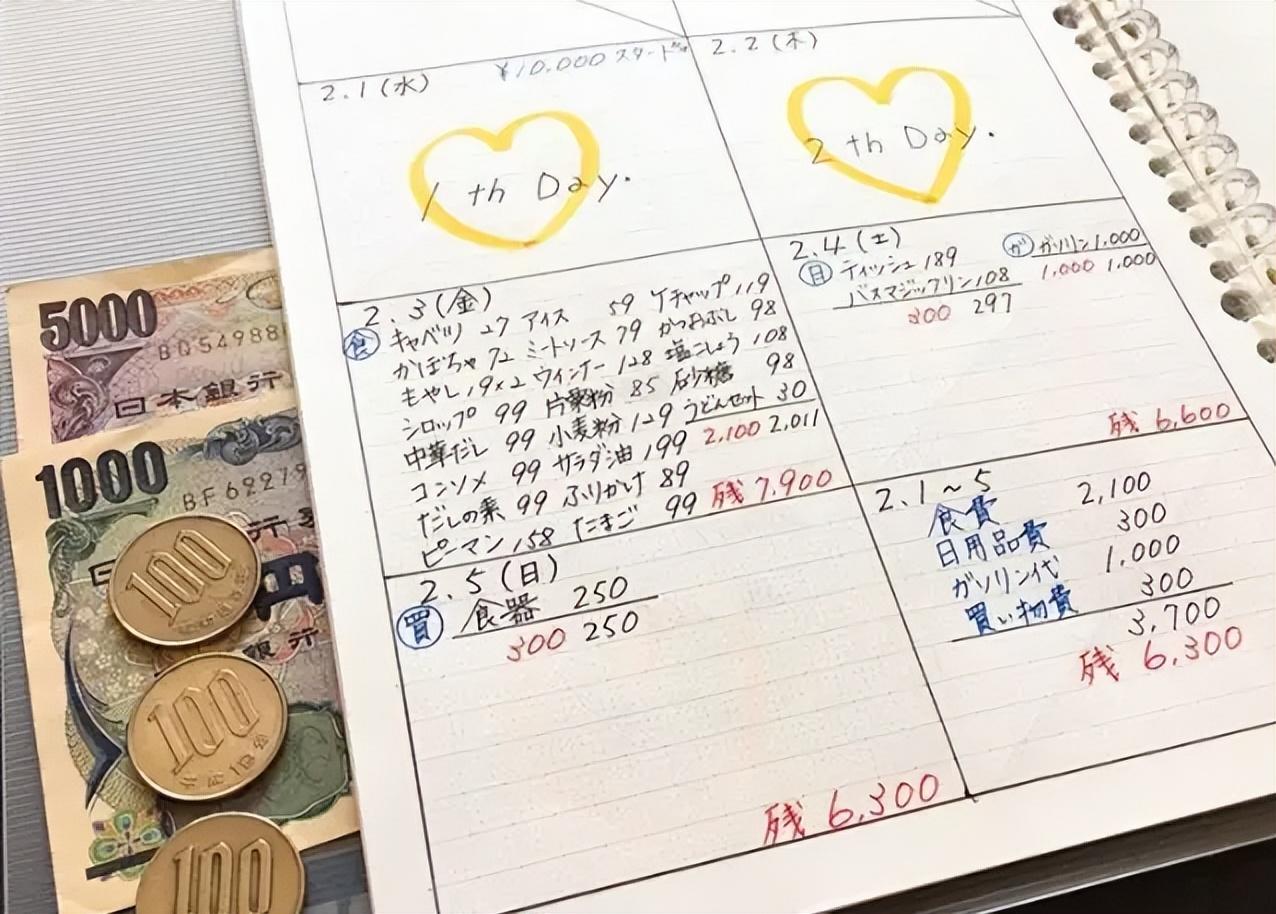 ¥10,000 スタート
2.1(水)
1 th Day.
2.2(木)
2 th Day.
2.3(金)
食 キャベツ 27 アイス 59 ケチャップ 119
かぼちゃ 72 ミートソース 79 かつおぶし 98
もやし 19×2 ウィンナー 128 塩こしょう 108
シロップ 99 片栗粉 85 砂糖 98
中華だし 99 小麦粉 129 うどんセット 30
コンソメ 99 サラダ油 199 2,100 2,011
だしの素 99 ふりかけ 89
ピーマン 158 たまご 99 残 7,900
2.4(土)
日 ティッシュ 189
バスマジックリン 108
300 297
ガ ガソリン 1,000
1,000 1,000
残 6,600
2.5(日)
買 食器 250
300 250
残 6,300
2.1~5
食費 2,100
日用品費 300
ガソリン代 1,000
買い物費 300
3,700
残 6,300
5000
BQ54988
日本銀行
1000
BF69279
銀行
円
100
100
100